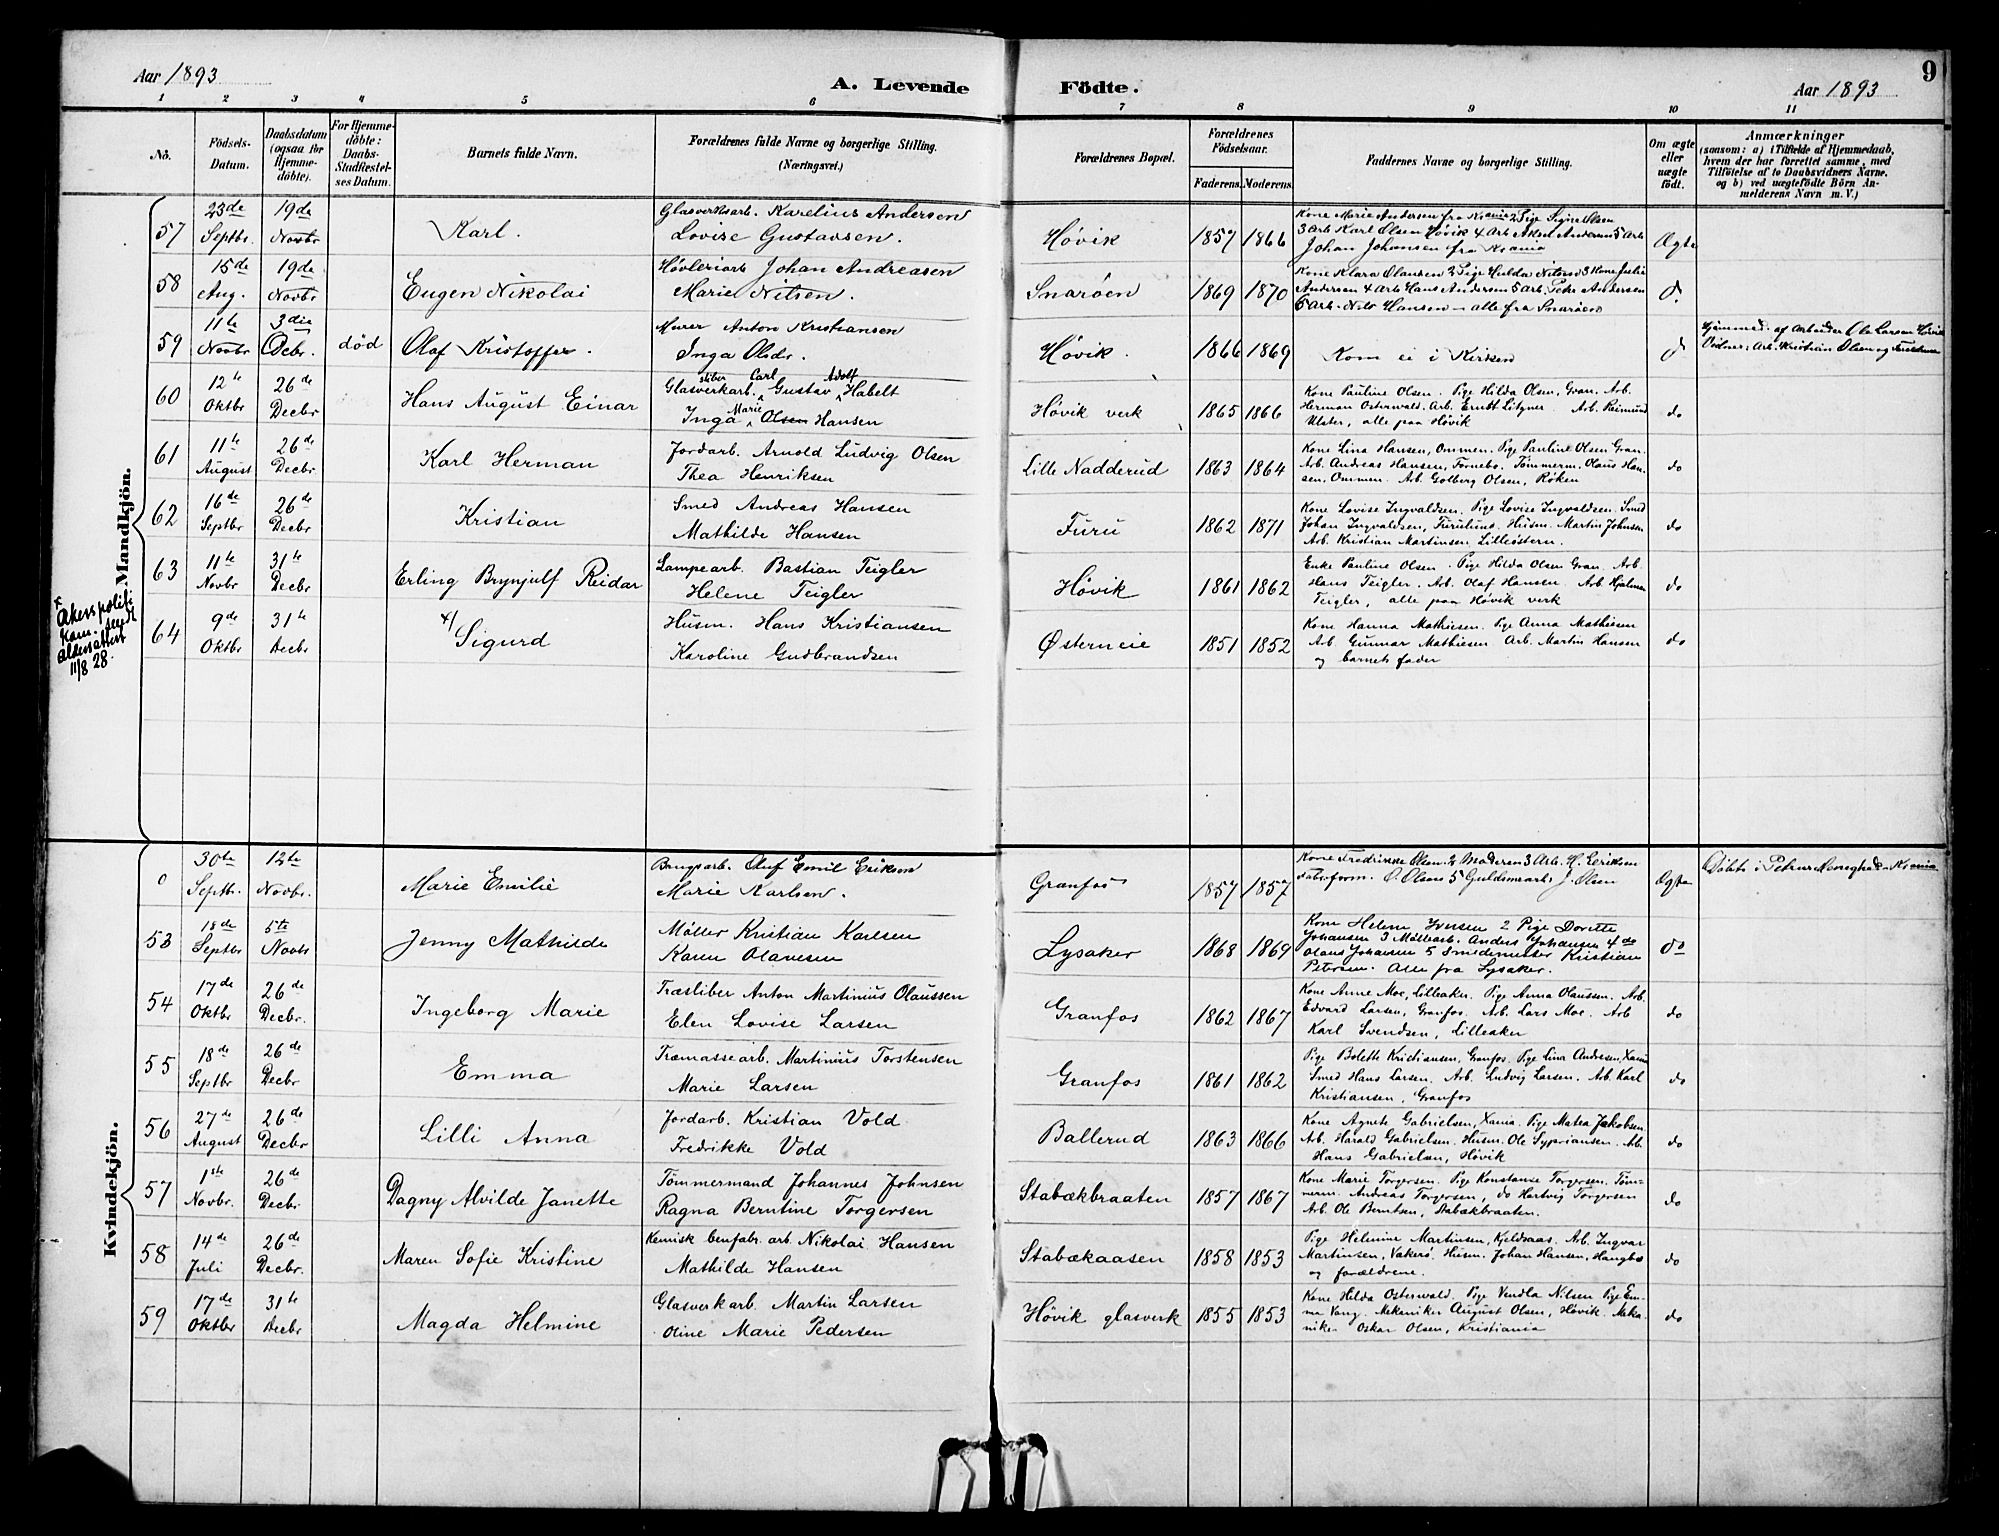 Aar 1893
A. Levende Födte.
Aar 1893
9
1 2 3 4 5 6 7 8 9 10 11
No.
Födsels-Datum.
Daabsdatum (ogsaa for Hjemme-döbte).
For Hjemme-döbte: Daabs-Stadfæstel-ses Datum.
Barnets fulde Navn.
Forældrenes fulde Navne og borgerlige Stilling. (Næringsvei.)
Forældrenes Bopæl.
Forældrenes Födselsaar.
Faderens. Moderens.
Faddernes Navne og borgerlige Stilling.
Om ægte eller uægte födt.
Anmærkninger
(saasom: a) i Tilfælde af Hjemmedaab,
hvem der har forrettet samme, med
Tilföielse af to Daabsvidners Navne.
og b) ved uægtefödte Börn An-
melderens Navn m. V.)
Mandkjön.
57 23de Septbr. 19de Novbr Karl. Glasverksarb. Karelius Andersen
Lovise Gustavsen. Høvik 1857 1866
Kone Marie Andersen fra Krania 2 Pige Signe Olsen
3 Arb Karl Olsen Høvik 4 Arb Aksel Andersen 5 Arb
Johan Johansen fra Krania Ægte
58 15de Aug. 19de Novbr Eugen Nikolai Høvleriarb Johan Andreasen
Marie Nilsen. Snarøen 1869 1870
Kone Klara Olausen 2 Pige Hulda Nilsen 3 Kone Julie
Andersen 4 Arb Hans Andersen 5 Arb. Petr Andersen
6 Arb. Nils Hansen – alle fra Snarøen d.
59 11te Novbr 3die Debr. død Olaf Kristoffer. Murer Anton Kristiansen
Inga Olsdr. Høvik. 1866 1869
Kom ei i Kirken d
Hjemmed. af Arbeider Ole Larsen Høvik
Vidner: Arb. Kristian Olsen og
60 12te Oktbr 26de Decbr Hans August Einar Glasverkarb. sliber Carl Gustav Adolf Habelt
Inga Marie Olsen Hansen Høvik verk 1865 1866
Kone Pauline Olsen. Pige Hilda Olsen, Gran. Arb.
Herman Osterwald. Arb. Ernst Litzner. Arb. Reimund
Ulster, alle paa Høvik do
61 11te August 26de Decbr. Karl Herman Jordarb. Arnold Ludvig Olsen
Thea Henriksen Lille Nadderud 1863 1864
Kone Lina Hansen, Ommen. Pige Pauline Olsen Gran.
Arb. Andreas Hansen, Fornebo. Tømmerm. Olaus Han-
sen, Ommen. Arb. Golberg Olsen, Røken do
62 16de Septbr 26de Decbr Kristian Smed Andreas Hansen
Mathilde Hansen Furu 1862 1871
Kone Lovise Ingvaldsen. Pige Lovise Ingvaldsen. Smed
Johan Ingvaldsen, Furulund. Husm. Martin Johnsen
Arb. Kristian Martinsen, Lilleøstern. do
63 11te Novbr 31te Decbr Erling Brynjulf Reidar Lampearb. Bastian Teigler
Helene Teigler Høvik 1861 1862
Enke Pauline Olsen. Pige Hilda Olsen Gran. Arb.
Hans Teigler. Arb. Olaf Hansen. Arb Hjalmar
Teigler, alle paa Høvik verk do
64 9de Oktbr 31te Decbr x) Sigurd Husm. Hans Kristiansen
Karoline Gudbrandsen Østerneie 1851 1852
Kone Hanna Mathiesen. Pige Anna Mathiesen
Arb Gunnar Mathiesen Arb. Martin Hansen
og barnets fader do
x Akers politi
kam. sendt
aldersattest
11/8 28.
Kvindekjön.
0 30te Septbr. 12te Novbr. Marie Emilie Brugsarb. Oluf Emil Eriksen
Marie Karlsen. Granfos 1857 1857
Kone Fredrikke Olsen. 2 Moderen 3 Arb. H. Eriksen
Fabr.form. O. Olsen 5 Guldsmearb. J. Olsen Ægte
Døbt i Petrus Menighed – Krania
53 18de Septbr 5te Novbr Jenny Mathilde Møller Kristian Karlsen
Karen Olavesen Lysaker 1868 1869
Kone Helene Iversen 2 Pige Dorette
Johansen 3 Møllearb. Anders Johansen 4 do
Olaus Johansen 5 Smedemester Kristian
Petersen. Alle fra Lysaker. do
54 17de Oktbr 26de Decbr. Ingeborg Marie Træsliber Anton Martinius Olaussen
Elen Lovise Larsen Granfos 1862 1867
Kone Anne Moe, Lilleaker. Pige Anna Olaussen. Arb.
Edvard Larsen, Granfos. Arb. Lars Moe. Arb
Karl Svendsen, Lilleaker do
55 18de Septbr 26de Decbr Emma Træmassearb. Martinius Torstensen
Marie Larsen Granfos 1861 1862
Pige Bolette Kristiansen, Granfos. Pige Lina Andresen, Xania
Smed Hans Larsen. Arb. Ludvig Larsen. Arb. Karl
Kristiansen, Granfos do
56 27de August 26de Decbr Lilli Anna Jordarb. Kristian Vold
Fredrikke Vold Ballerud 1863 1866
Kone Agnete Gabrielsen, Xania. Pige Matea Jakobsen.
Arb. Harald Gabrielsen. Husm. Ole Sypriansen. Arb.
Hans Gabrielsen, Høvik do
57 1ste Novbr. 26de Decbr Dagny Alvilde Janette Tömmermand Johannes Johnsen
Ragna Berntine Torgersen Stabækbraaten 1857 1867
Kone Marie Torgersen. Pige Konstanse Torgersen. Töm-
merm. Andreas Torgersen, do Hartvig Torgersen
Arb. Ole Berntsen, Stabækbraaten. do
58 14de Juli 26de Decbr. Maren Sofie Kristine Kemisk benfabr. arb Nikolai Hansen
Mathilde Hansen Stabækaasen 1858 1853
Pige Helenine Martinsen, Kjeldsaas. Arb. Ingvar
Martinsen, Vækerø. Husm. Johan Hansen, Haugbo
og forældrene. do
59 17de Oktbr 31te Decbr Magda Helmine Glasverkarb. Martin Larsen
Oline Marie Pedersen Høvik glasverk 1855 1853
Kone Hilda Osterwald. Pige Vendla Nilsen Pige Em-
ma Vang. Mekaniker August Olsen, Høvik. Meka-
niker Oskar Olsen, Kristiania do